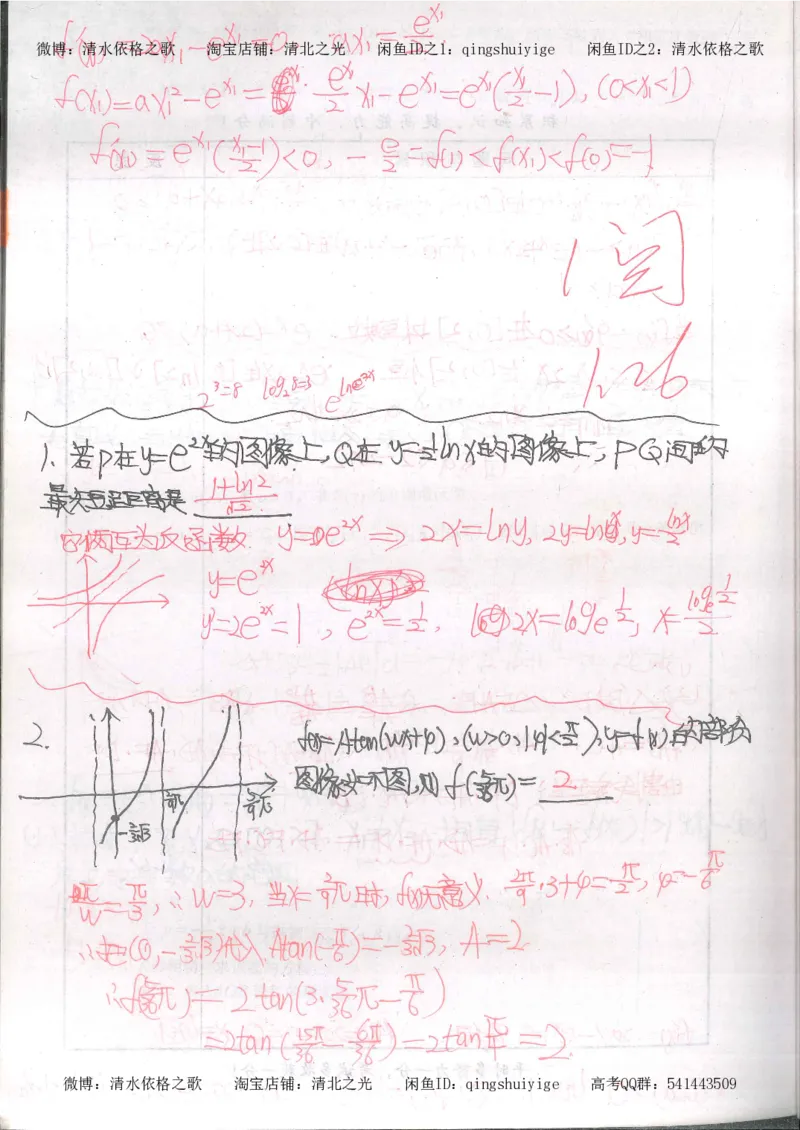 f'(x₁)=2ax₁-e^{x₁}=0, ax₁=\frac{e^{x₁}}{2}
微博：清水依格之歌 淘宝店铺：清北之光 闲鱼ID之1：qingshuiyige 闲鱼ID之2：清水依格之歌
f(x₁)=ax₁²-e^{x₁}=\frac{e^{x₁}}{2}x₁-e^{x₁}=e^{x₁}(\frac{x₁}{2}-1), (0<x₁<1)
f'(x₁)=e^{x₁}(\frac{x₁-1}{2})<0, -\frac{e}{2}=f(1)<f(x₁)<f(0)=-1
1闫
1.26
2³=8 log₂8=3 e^{lne^{2x}}
1. 若P在y=e^{2x}的图像上,Q在y=\frac{1}{2}lnx的图像上,PQ间的
最短距离是 \frac{1+ln2}{\sqrt{2}}
它俩互为反函数 y=e^{2x} => 2x=lny, 2y=lnx, y=\frac{lnx}{2}
y=e^{2x}
y'=2e^{2x}=1, e^{2x}=\frac{1}{2}, 2x=log_e\frac{1}{2}, x=\frac{log_e\frac{1}{2}}{2}
2. f(x)=Atan(wx+φ),(w>0,|φ|<\frac{π}{2}),y=f(x)的部分
图像如下图,则f(\frac{5}{36}π)= 2
\frac{2}{9}π \frac{5}{9}π
-\frac{2}{3}√3
\frac{π}{w}=\frac{π}{3}, ∴w=3, 当x=\frac{2}{9}π时,f(x)无意义. \frac{2π}{9}·3+φ=\frac{π}{2}, φ=-\frac{π}{6}
∴把(0,-\frac{2}{3}√3)代入,Atan(-\frac{π}{6})=-\frac{2}{3}√3, A=2
∴f(\frac{5}{36}π)=2tan(3·\frac{5}{36}π-\frac{π}{6})
=2tan(\frac{15π}{36}-\frac{6π}{36})=2tan\frac{π}{4}=2.
微博：清水依格之歌 淘宝店铺：清北之光 闲鱼ID：qingshuiyige 高考QQ群：541443509